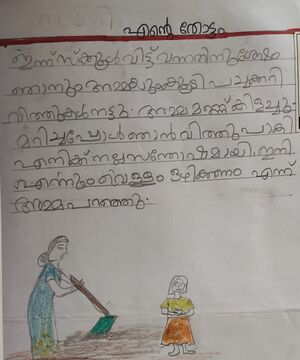 എന്റെ തോട്ടം
ഇന്ന് സ്ക്കൂൾ വിട്ട് വന്നതിനുശേഷം
ഞാനും അമ്മയുംകൂടി പച്ചക്കറി
വിത്തുകൾ നട്ടു. അമ്മ മണ്ണ് കിളച്ചു
മറിച്ചപ്പോൾ ഞാൻ വിത്തു പാകി
എനിക്ക് നല്ല സന്തോഷമായി. ഇനി
എന്നും വെള്ളം ഒഴിക്കണം എന്ന്
അമ്മ പറഞ്ഞു.